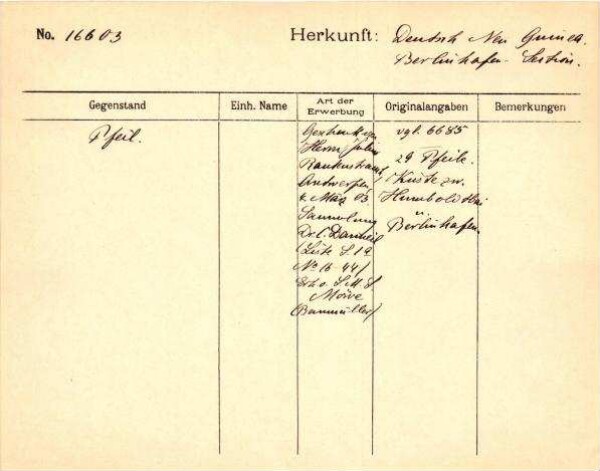 No. 16603
Herkunft: Deutsch Neu Guinea.
Berlinhafen-Sektion.
Gegenstand
Einh. Name
Art der
Erwerbung
Originalangaben
Bemerkungen
Pfeil.
Geschenk von
Herrn Julius
Rautenstrauch,
Antwerpen,
März 03.
Sammlung
Dr. C. Danneil
(Liste S. 19
No 16-44)
S.M.S
Möwe
vgl. 6685
29 Pfeile.
Küste zw.
Humboldtbai
u
Berlinhafen.